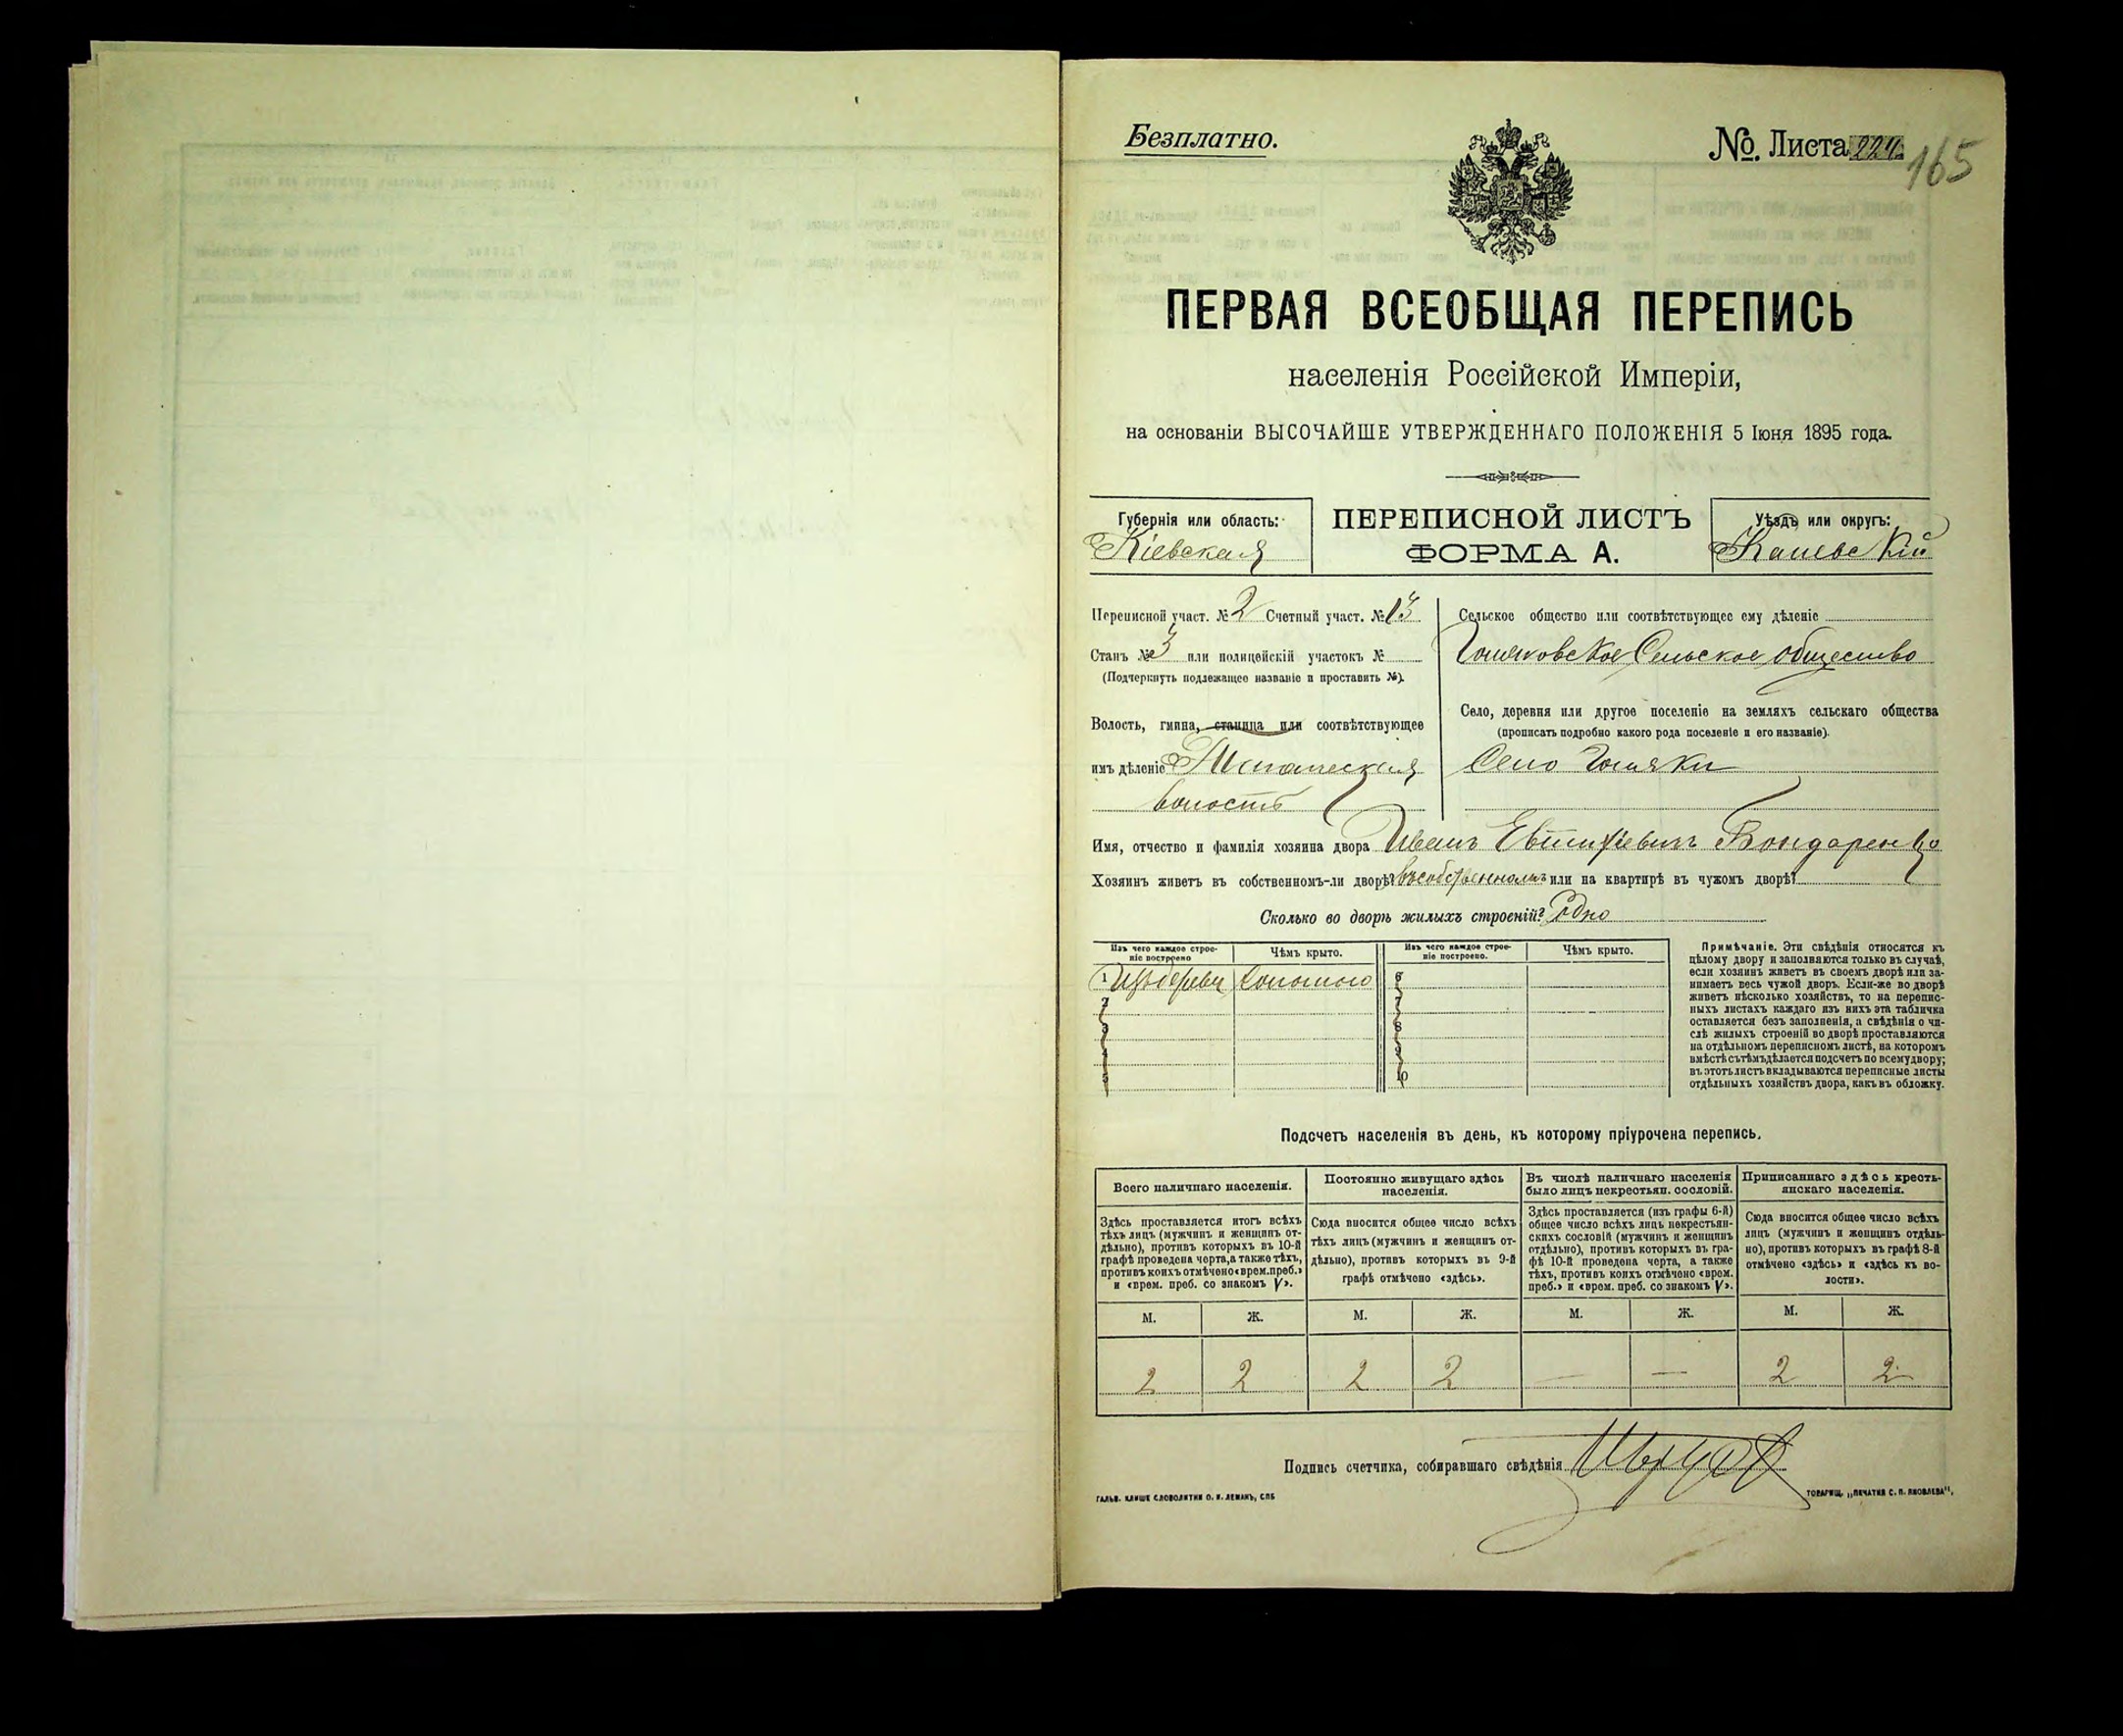 Безплатно.
№ Листа 224.
165
ПЕРВАЯ ВСЕОБЩАЯ ПЕРЕПИСЬ
населенія Россійской Имперіи,
на основаніи ВЫСОЧАЙШЕ УТВЕРЖДЕННАГО ПОЛОЖЕНІЯ 5 Іюня 1895 года.
Губернія или область:
Кіевская
ПЕРЕПИСНОЙ ЛИСТЪ
ФОРМА А.
Уѣздъ или округъ:
Каневскій
Переписной участ. № 2 Счетный участ. № 13
Станъ № 3 или полицейскій участокъ №
(Подчеркнуть подлежащее названіе и проставить №).
Волость, гмина, станица или соотвѣтствующее
имъ дѣленіе
волость
Сельское общество или соотвѣтствующее ему дѣленіе
Сельское общество
Село, деревня или другое поселеніе на земляхъ сельскаго общества
(прописать подробно какого рода поселеніе и его названіе).
Село
Имя, отчество и фамилія хозяина двора Иванъ Евтихіевичъ Бондаренко
Хозяинъ живетъ въ собственномъ-ли дворѣ? въ собственномъ или на квартирѣ въ чужомъ дворѣ?
Сколько во дворѣ жилыхъ строеній? Одно
Изъ чего каждое строе-
ніе построено
Чѣмъ крыто.
Изъ чего каждое строе-
ніе построено.
Чѣмъ крыто.
1 Изъ дерева Соломою 6
2 7
3 8
4 9
5 10
Примѣчаніе. Эти свѣдѣнія относятся къ
цѣлому двору и заполняются только въ случаѣ,
если хозяинъ живетъ въ своемъ дворѣ или за-
нимаетъ весь чужой дворъ. Если-же во дворѣ
живетъ нѣсколько хозяйствъ, то на перепис-
ныхъ листахъ каждаго изъ нихъ эта табличка
оставляется безъ заполненія, а свѣдѣнія о чи-
слѣ жилыхъ строеній во дворѣ проставляются
на отдѣльномъ переписномъ листѣ, на которомъ
вмѣстѣ съ тѣмъ дѣлается подсчетъ по всему двору;
въ этотъ листъ вкладываются переписные листы
отдѣльныхъ хозяйствъ двора, какъ въ обложку.
Подсчетъ населенія въ день, къ которому пріурочена перепись.
Всего наличнаго населенія.
Здѣсь проставляется итогъ всѣхъ
тѣхъ лицъ (мужчинъ и женщинъ от-
дѣльно), противъ которыхъ въ 10-й
графѣ проведена черта, а также тѣхъ,
противъ коихъ отмѣчено «врем. преб.»
и «врем. преб. со знакомъ V».
Постоянно живущаго здѣсь
населенія.
Сюда вносится общее число всѣхъ
тѣхъ лицъ (мужчинъ и женщинъ от-
дѣльно), противъ которыхъ въ 9-й
графѣ отмѣчено «здѣсь».
Въ числѣ наличнаго населенія
было лицъ некрестьян. сословій.
Здѣсь проставляется (изъ графы 6-й)
общее число всѣхъ лицъ некрестьян-
скихъ сословій (мужчинъ и женщинъ
отдѣльно), противъ которыхъ въ гра-
фѣ 10-й проведена черта, а также
тѣхъ, противъ коихъ отмѣчено «врем.
преб.» и «врем. преб. со знакомъ V».
Приписаннаго здѣсь кресть-
янскаго населенія.
Сюда вносится общее число всѣхъ
лицъ (мужчинъ и женщинъ отдѣль-
но), противъ которыхъ въ графѣ 8-й
отмѣчено «здѣсь» и «здѣсь къ во-
лости».
М. Ж. М. Ж. М. Ж. М. Ж.
2 2 2 2 — — 2 2
Подпись счетчика, собиравшаго свѣдѣнія
ГАЛЬВ. КЛИШЕ СЛОВОЛИТНИ О. И. ЛЕМАНЪ, СПБ
ТОВАРИЩ. „ПЕЧАТНЯ С. П. ЯКОВЛЕВА“,